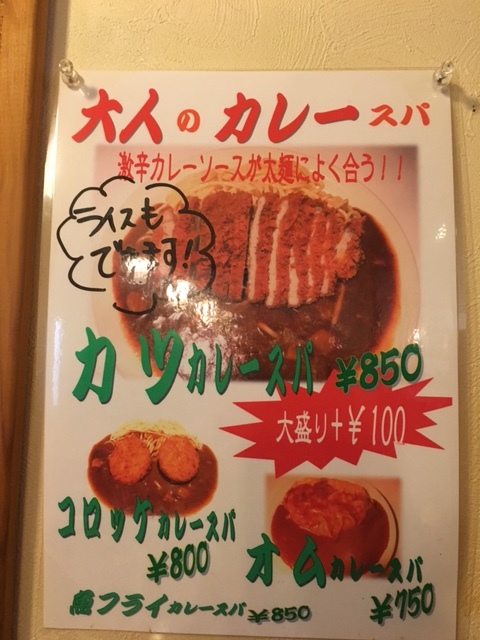 大人のカレースパ
激辛カレーソースが太麺によく合う!!
ライスも
できます!
カツカレースパ ¥850
大盛り+¥100
コロッケカレースパ
¥800
オムカレースパ
¥750
魚フライカレースパ ¥850